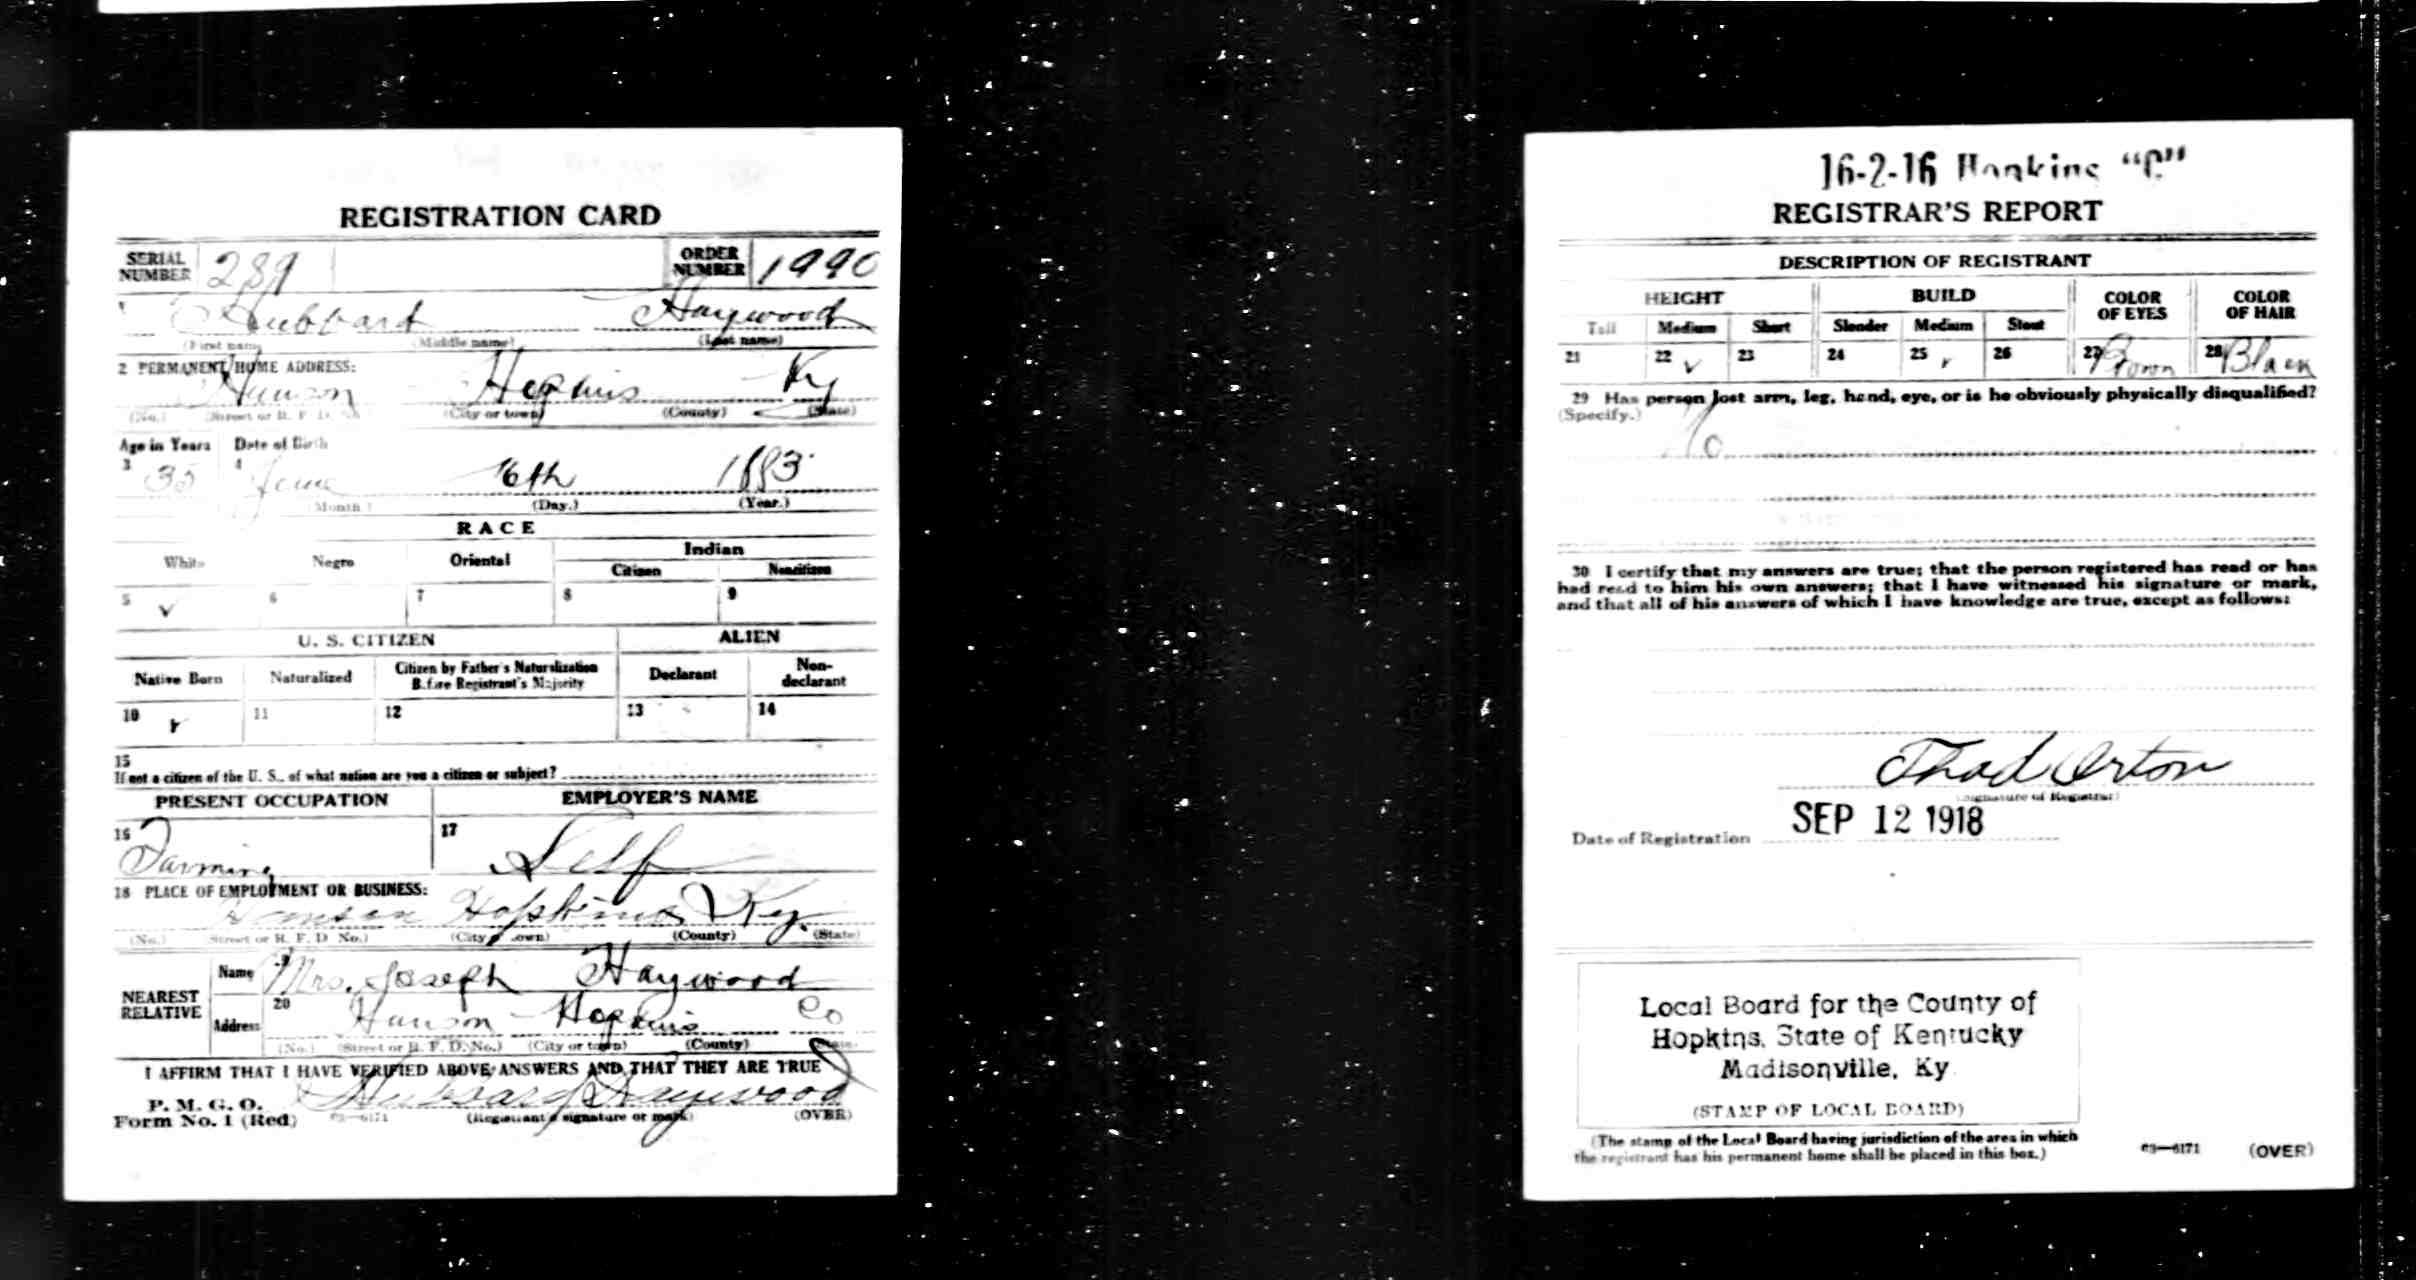 REGISTRATION CARD
SERIAL NUMBER 289 ORDER NUMBER 1990
1 Hubbard Haywood
(First name) (Middle name) (Last name)
2 PERMANENT HOME ADDRESS:
Hanson Hopkins Ky
(No.) (Street or R. F. D. No.) (City or town) (County) (State)
Age in Years Date of Birth
3 35 4 June 6th 1883
(Month.) (Day.) (Year.)
RACE
White Negro Oriental Indian
Citizen Noncitizen
5 ✓ 6 7 8 9
U. S. CITIZEN ALIEN
Native Born Naturalized Citizen by Father's Naturalization Before Registrant's Majority Declarant Non-declarant
10 ✓ 11 12 13 14
15
If not a citizen of the U. S., of what nation are you a citizen or subject?
PRESENT OCCUPATION EMPLOYER'S NAME
16 Farming 17 Self
18 PLACE OF EMPLOYMENT OR BUSINESS:
Hanson Hopkins Ky.
(No.) (Street or R. F. D. No.) (City or town) (County) (State)
NEAREST RELATIVE
Name 19 Mrs. Joseph Haywood
Address 20 Hanson Hopkins Co
(No.) (Street or R. F. D. No.) (City or town) (County) (State)
I AFFIRM THAT I HAVE VERIFIED ABOVE ANSWERS AND THAT THEY ARE TRUE
P. M. G. O.
Form No. 1 (Red) 03—6171 Hubbard Haywood
(Registrant's signature or mark) (OVER)
16-2-16 Hopkins "C"
REGISTRAR'S REPORT
DESCRIPTION OF REGISTRANT
HEIGHT BUILD COLOR OF EYES COLOR OF HAIR
Tall Medium Short Slender Medium Stout
21 22 ✓ 23 24 25 ✓ 26 27 Brown 28 Black
29 Has person lost arm, leg, hand, eye, or is he obviously physically disqualified?
(Specify.) No
30 I certify that my answers are true; that the person registered has read or has
had read to him his own answers; that I have witnessed his signature or mark,
and that all of his answers of which I have knowledge are true, except as follows:
Thad Orton
(Signature of Registrar)
Date of Registration SEP 12 1918
Local Board for the County of
Hopkins, State of Kentucky
Madisonville, Ky
(STAMP OF LOCAL BOARD)
(The stamp of the Local Board having jurisdiction of the area in which
the registrant has his permanent home shall be placed in this box.)
03—6171 (OVER)